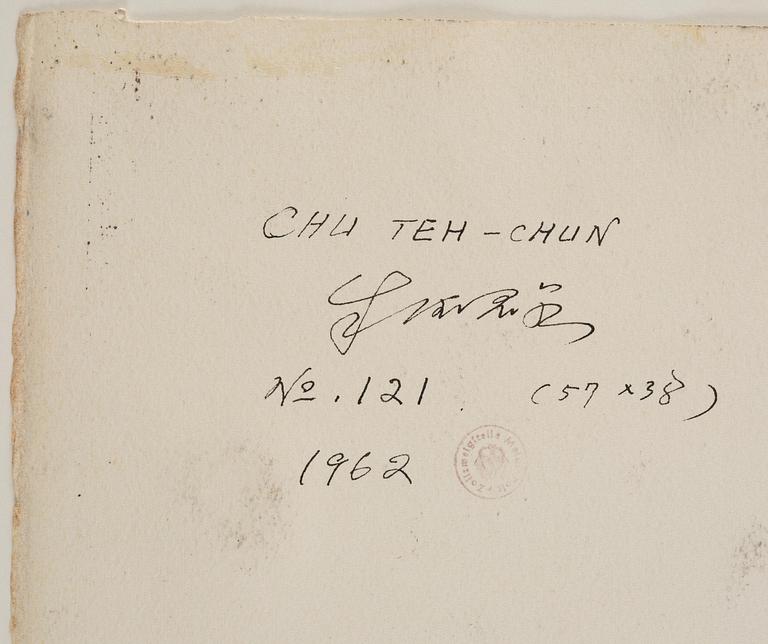 CHU TEH-CHUN
朱德群
No. 121 (57 x 38)
1962
Zollzweigstelle